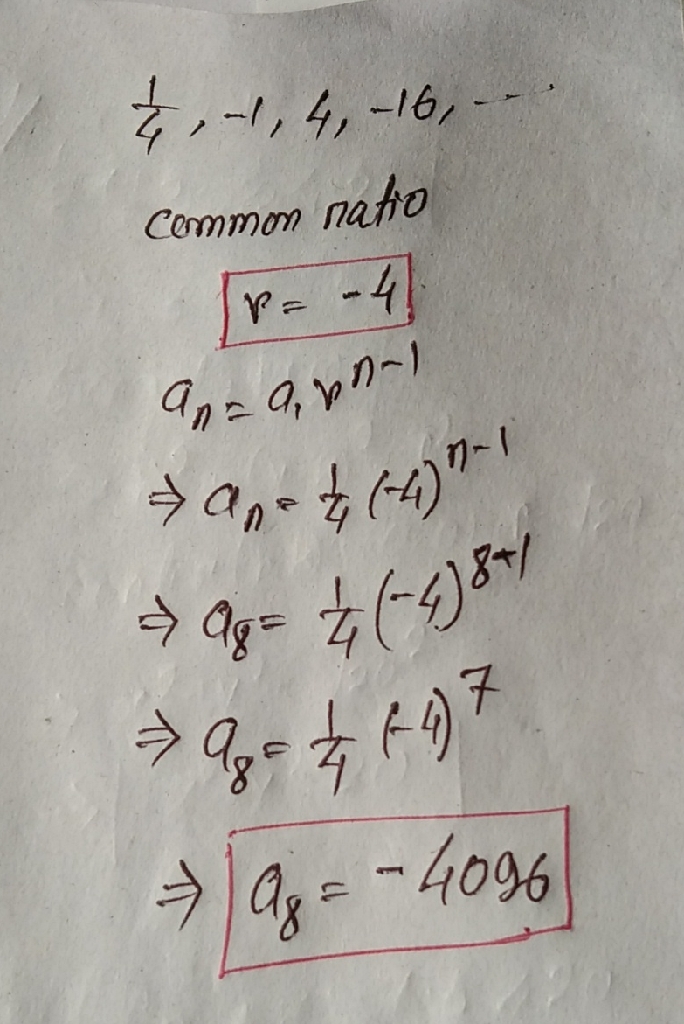 1/4, -1, 4, -16, ---
common ratio
r = -4
aₙ = a₁ rⁿ⁻¹
⇒ aₙ = 1/4 (-4)ⁿ⁻¹
⇒ a₈ = 1/4 (-4)⁸⁺¹
⇒ a₈ = 1/4 (-4)⁷
⇒ a₈ = -4096